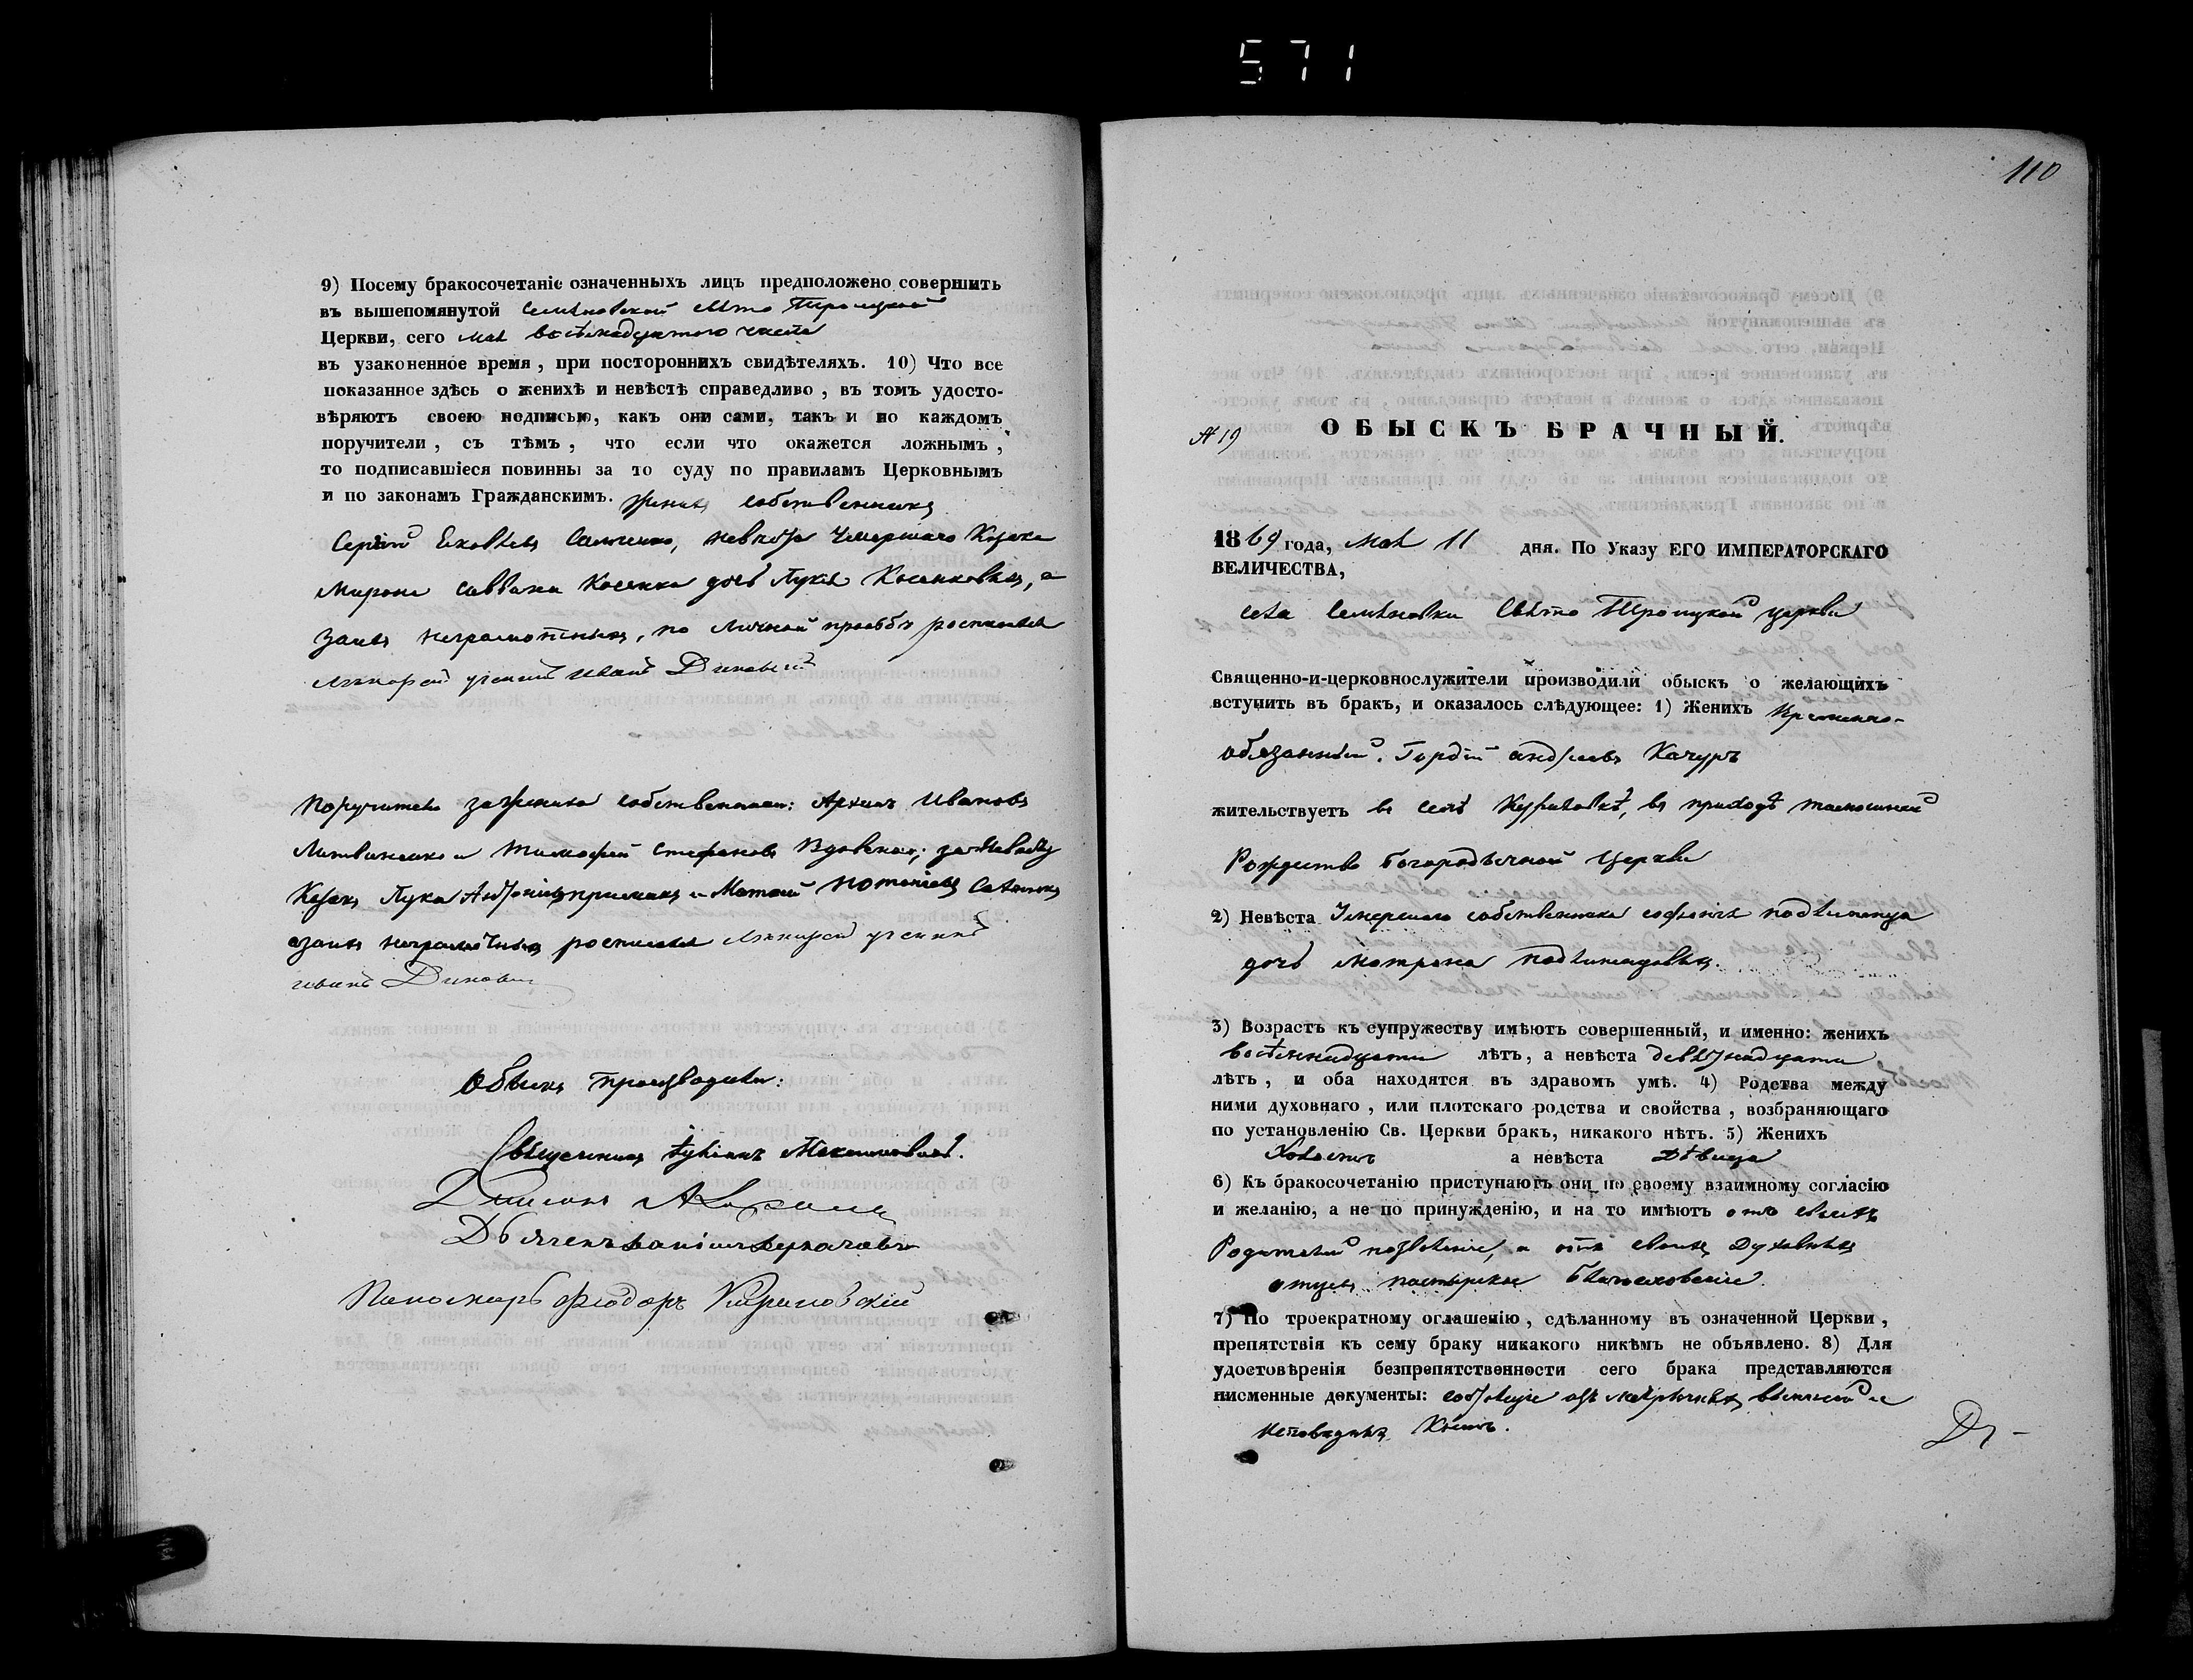 571
9) Посему бракосочетаніе означенныхъ лицъ предположено совершить
въ вышепомянутой Семяновской Свято Троицкой
Церкви, сего мая восемнадцатого числа
въ узаконенное время, при постороннихъ свидѣтеляхъ. 10) Что все
показанное здѣсь о женихѣ и невѣстѣ справедливо, въ томъ удосто-
вѣряютъ своею подписью, какъ они сами, такъ и по каждомъ
поручители, съ тѣмъ, что если что окажется ложнымъ,
то подписавшіеся повинны за то суду по правиламъ Церковнымъ
и по законамъ Гражданскимъ. Женихъ собственникъ
Сергій Яковлевъ невѣста Умершаго Козака
Мирона Саввина Косенка дочь Лукія Косенковна, а
занихъ неграмотныхъ, по личной прозьбѣ росписался
Иванъ
Поручители за жениха собственники: Архипъ Ивановъ
Литвиненко и Тимофей Стефановъ Вдовенко; за невѣсту
Козаки Лука и Матвій
а заних неграмотныхъ росписался
иванъ
Обыскъ производили:
Священникъ Іуліанъ Максимовичъ.
Дьячекъ
Пономарь Феодоръ
110
№ 19
ОБЫСКЪ БРАЧНЫЙ.
1869 года, Мая 11 дня. По Указу ЕГО ИМПЕРАТОРСКАГО
ВЕЛИЧЕСТВА,
села Семяновки Свято Троицкой церкви
Священно-и-церковнослужители производили обыскъ о желающихъ
вступить въ бракъ, и оказалось слѣдующее: 1) Женихъ Временно-
обязанный. Гордій Андреевъ Качуръ
жительствуетъ въ селѣ въ приходѣ тамошней
Рождество Богородичной Церкви
2) Невѣста Умершаго собственника
дочь Матрона
3) Возрастъ къ супружеству имѣютъ совершенный, и именно: женихъ
восемнадцати лѣтъ, а невѣста девятнадцати
лѣтъ, и оба находятся въ здравомъ умѣ. 4) Родства между
ними духовнаго, или плотскаго родства и свойства, возбраняющаго
по установленію Св. Церкви бракъ, никакого нѣтъ. 5) Женихъ
Холостъ а невѣста Дѣвица
6) Къ бракосочетанію приступаютъ они по своему взаимному согласію
и желанію, а не по принужденію, и на то имѣютъ отъ своихъ
Родителей позволеніе, а отъ своихъ Духовныхъ
отцевъ пастырское благословеніе.
7) По троекратному оглашенію, сдѣланному въ означенной Церкви,
препятствія къ сему браку никакого никѣмъ не объявлено. 8) Для
удостовѣренія безпрепятственности сего брака представляются
писменные документы: изъ метричныхъ выписей и
исповѣдныхъ Книгъ.